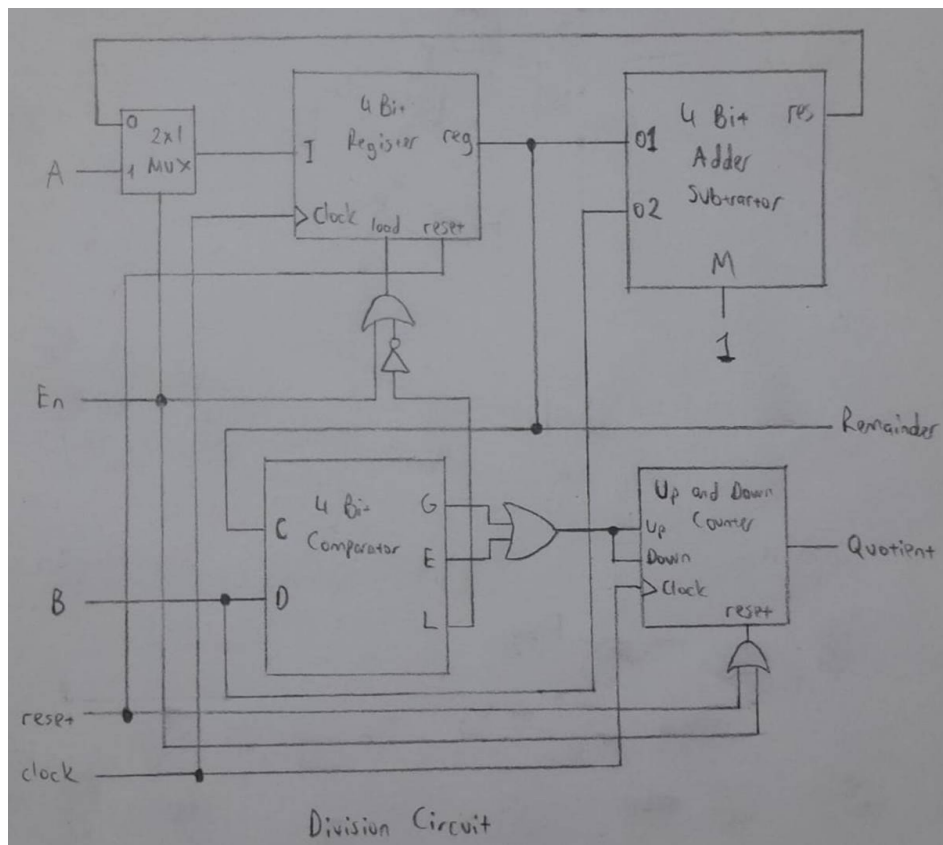 0
2x1
1 MUX
A
4 Bit
Register
I
reg
Clock
load
reset
4 Bit
Adder
Subtractor
O1
O2
res
M
1
En
Remainder
4 Bit
Comparator
C
D
G
E
L
B
Up and Down
Counter
Up
Down
Clock
reset
Quotient
reset
clock
Division Circuit